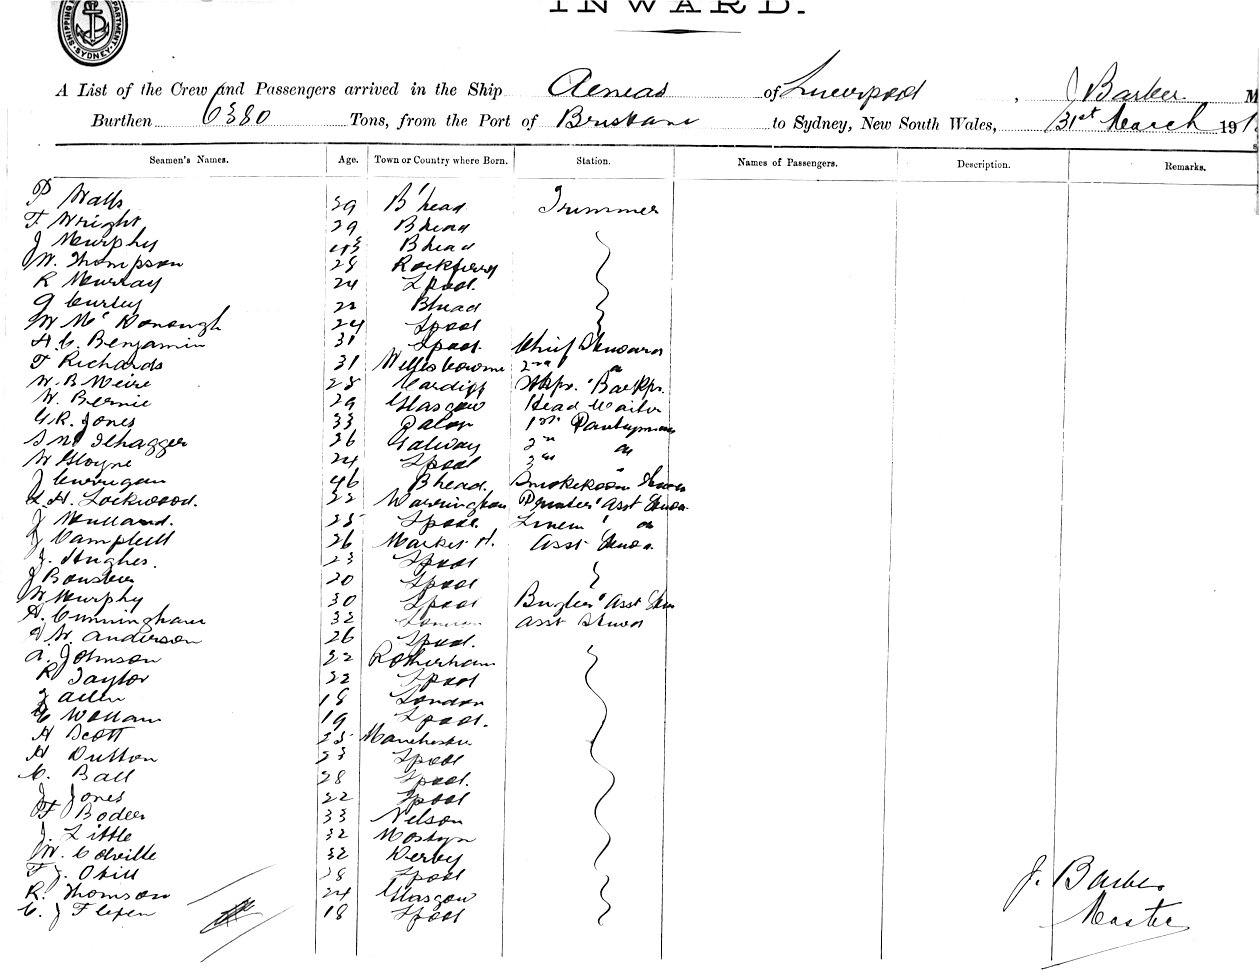 INWARD.
SHIPPING DEPARTMENT SYDNEY
A List of the Crew and Passengers arrived in the Ship Aeneas of Liverpool, J Barber M
Burthen 6380 Tons, from the Port of Brisbane to Sydney, New South Wales, 31st March 191
Seamen's Names. Age. Town or Country where Born. Station. Names of Passengers. Description. Remarks.
P Walls 39 B'head Trimmer
F Wright 29 Bhead
J Murphy Bhead
W. Thompson 28 Rockferry
R Murray 24 Lpool.
Curley 22 Bhead
W McDonough 24 Lpool
H. C. Benjamin 31 Lpool. Chief Steward
F Richards 31 Wellesbourne 2nd "
W. B. Weire 28 Cardiff
W. Bernie 29 Glasgow Head Waiter
G. R. Jones 33 1st Pantryman
26 Galway 2nd "
W Gloyne 24 Lpool 3rd "
J Corrigan 46 Bhead. Smokeroom
H. Lockwood. 22 Warrington Asst
J 25 Lpool. Linen "
J Campbell 26 Market H. Asst
J. Hughes. 23 Lpool
J 20 Lpool
W Murphy 30 Lpool Bugler Asst
A. Cunningham 32 London Asst Steward
W. Anderson 26 Lpool.
A. Johnson 22 Rotherham
R Taylor 22 Lpool
J Allen 18 London
19 Lpool.
H Scott 25 Manchester
H Dutton 23 Lpool
C. Ball 28 Lpool.
J. Jones 22 Lpool
F Bodes 33 Nelson
J. Little 32 Mostyn
W. Colville 32 Derby
F J. Okill 28 Lpool
R. Thomson 24 Glasgow
C. J 18 Lpool
J. Barber
Master